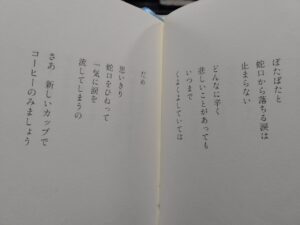 ぽたぽたと
蛇口から落ちる涙は
止まらない
どんなに辛く
悲しいことがあっても
いつまで
くよくよしていては
だめ
思いきり
蛇口をひねって
一気に涙を
流してしまうの
さあ 新しいカップで
コーヒーのみましょう